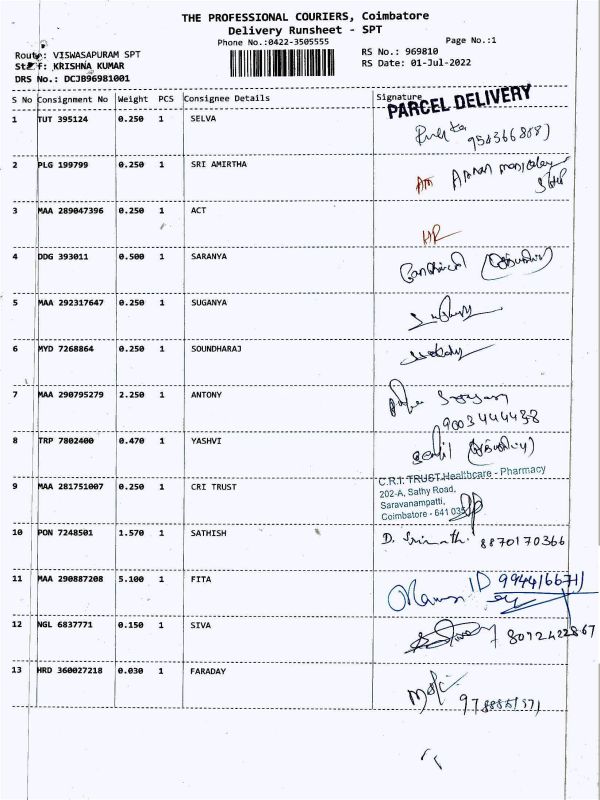 THE PROFESSIONAL COURIERS, Coimbatore
Delivery Runsheet - SPT
Phone No.:0422-3505555 Page No.:1
Route: VISWASAPURAM SPT RS No.: 969810
Staff: KRISHNA KUMAR RS Date: 01-Jul-2022
DRS No.: DCJB96981001
S No Consignment No Weight PCS Consignee Details Signature
PARCEL DELIVERY
1 TUT 395124 0.250 1 SELVA
2 PLG 199799 0.250 1 SRI AMIRTHA
3 MAA 289047396 0.250 1 ACT
4 DDG 393011 0.500 1 SARANYA
5 MAA 292317647 0.250 1 SUGANYA
6 MYD 7268864 0.250 1 SOUNDHARAJ
7 MAA 290795279 2.250 1 ANTONY
9003444438
8 TRP 7802400 0.470 1 YASHVI
C.R.I. TRUST Healthcare - Pharmacy
9 MAA 281751007 0.250 1 CRI TRUST
202-A, Sathy Road,
Saravanampatti,
Coimbatore - 641 035
10 PON 7248501 1.570 1 SATHISH
8870170366
11 MAA 290887208 5.100 1 FITA
9944166711
12 NGL 6837771 0.150 1 SIVA
8072422867
13 HRD 360027218 0.030 1 FARADAY